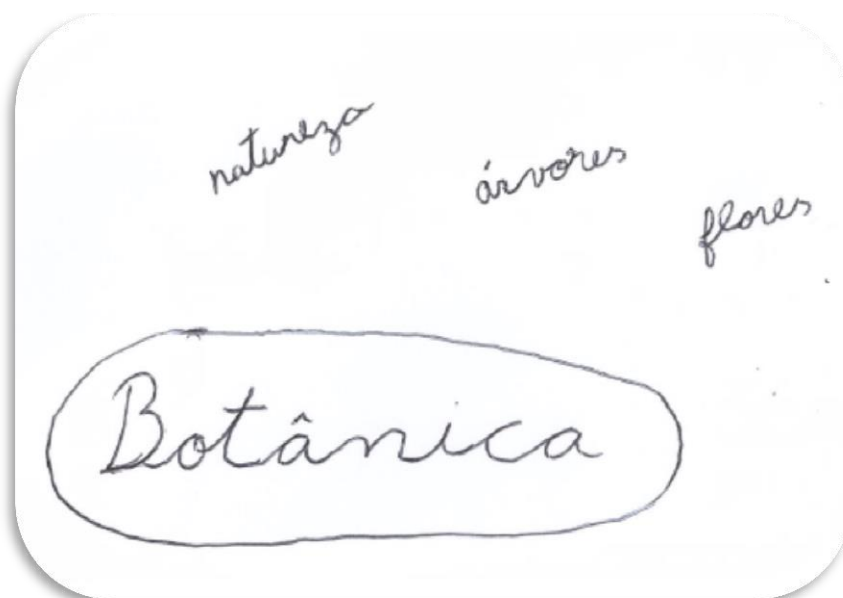 natureza
árvores
flores
Botânica